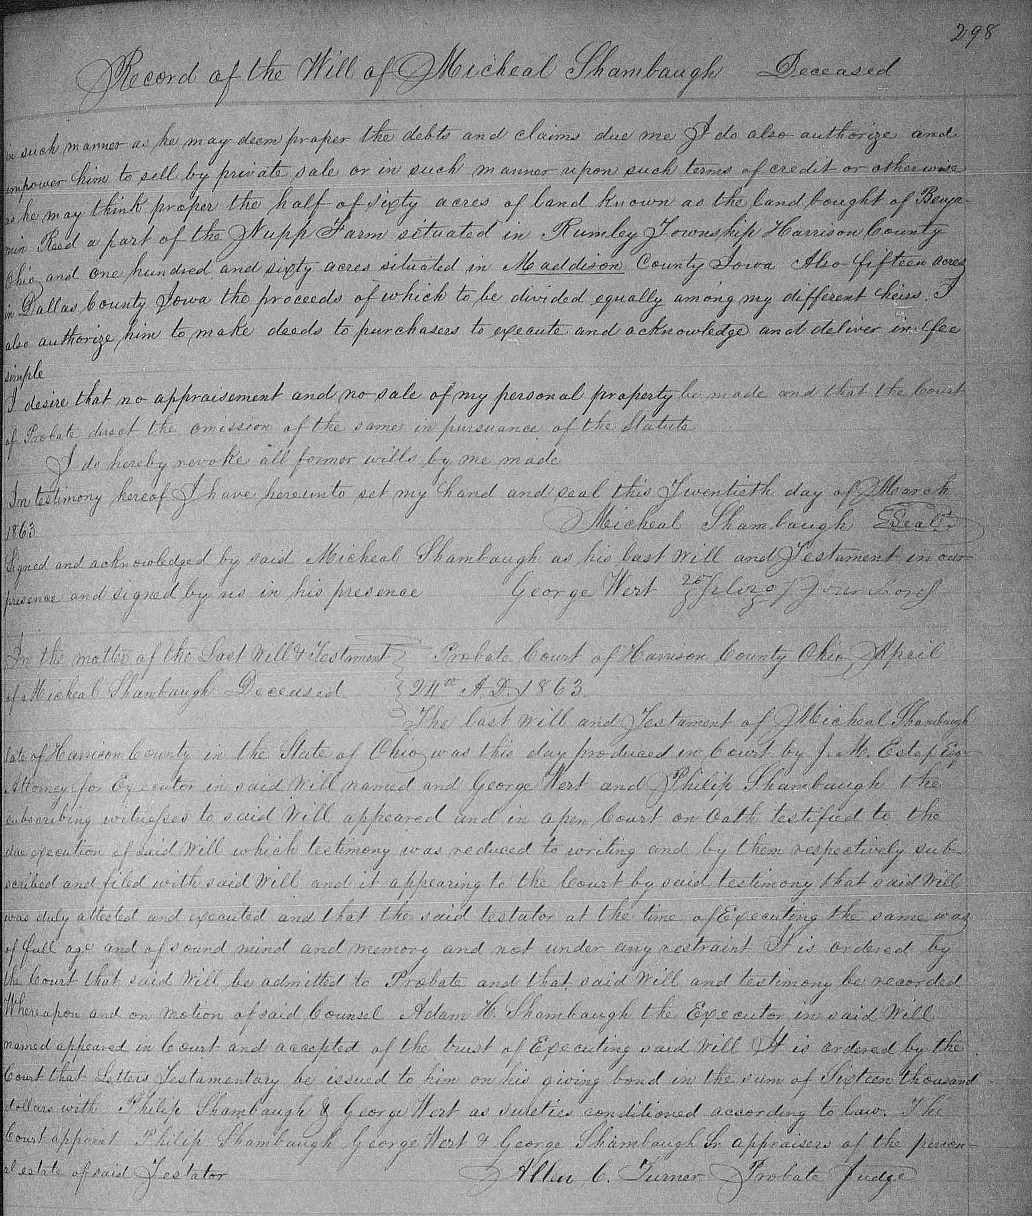 298
Record of the Will of Micheal Shambaugh Deceased
in such manner as he may deem proper the debts and claims due me I do also authorize and
empower him to sell by private sale or in such manner upon such terms of credit or otherwise
as he may think proper the half of sixty acres of land known as the land bought of Benja-
min Reed a part of the Nupp Farm situated in Rumley Township Harrison County
Ohio and one hundred and sixty acres situated in Maddison County Iowa Also fifteen acres
in Dallas County Iowa the proceeds of which to be divided equally among my different heirs. I
also authorize him to make deeds to purchasers to execute and acknowledge and deliver in fee
simple
I desire that no appraisement and no sale of my personal property be made and that the Court
of Probate direct the omission of the same in pursuance of the Statute
I do hereby revoke all former wills by me made
In testimony hereof I have hereunto set my hand and seal this Twentieth day of March
1863 Micheal Shambaugh Seal
Signed and acknowledged by said Micheal Shambaugh as his last Will and Testament in our
presence and signed by us in his presence George Wert
In the matter of the Last Will & Testament Probate Court of Harrison County Ohio April
of Micheal Shambaugh Deceased 24th A.D. 1863
The last will and Testament of Micheal Shambaugh
late of Harrison County in the State of Ohio was this day produced in Court by J. M. Estep Esq
Attorney for Executor in said Will named and George Wert and Philip Shambaugh the
subscribing witnesses to said Will appeared and in open Court on Oath testified to the
due execution of said Will which testimony was reduced to writing and by them respectively sub-
scribed and filed with said Will and it appearing to the Court by said testimony that said Will
was duly attested and executed and that the said testator at the time of Executing the same was
of full age and of sound mind and memory and not under any restraint It is ordered by
the Court that said Will be admitted to Probate and that said Will and testimony be recorded
Whereupon and on motion of said Counsel Adam H. Shambaugh the Executor in said Will
named appeared in Court and accepted of the trust of Executing said Will It is ordered by the
Court that Letters Testamentary be issued to him on his giving bond in the sum of Sixteen thousand
dollars with Philip Shambaugh & George Wert as sureties conditioned according to law. The
Court appoint Philip Shambaugh George Wert & George Shambaugh Sr appraisers of the person-
al estate of said Testator Allen C. Turner Probate Judge